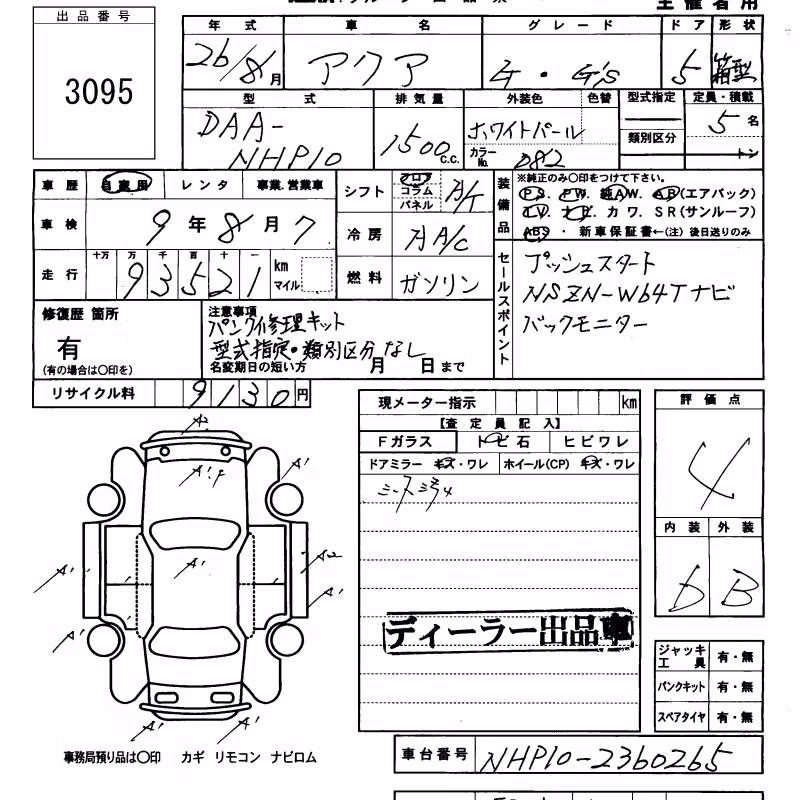 主催者用
出品番号
3095
年式 車名 グレード ドア 形状
26/8月 アクア G・G's 5 箱型
型式 排気量 外装色 色替 型式指定 定員・積載
DAA-NHP10 1500c.c. ホワイトパール 5名
カラーNo. 082 類別区分 トン
車歴 自家用 レンタ 事業.営業車
シフト フロア コラム パネル A/T
装備品 ※純正のみ〇印をつけて下さい。
PS. PW. 純AW. AB(エアバック)
TV. ナビ. カワ. SR(サンルーフ)
ABS・ 新車保証書←(注) 後日送りのみ
車検 9年8月7
冷房 A/C
走行 十万 万 千 百 十 一
93521 km マイル
燃料 ガソリン
セールスポイント
プッシュスタート
NSZN-W64Tナビ
バックモニター
修復歴 箇所
有
(有の場合は〇印を)
注意事項
パンク修理キット
型式指定・類別区分なし
名変期日の短い方 月 日まで
リサイクル料 9130円
現メーター指示 km
【査定員記入】
Fガラス トビ石 ヒビワレ
ドアミラー キズ・ワレ ホイール(CP) キズ・ワレ
評価点
4
内装 外装
b B
A2
A'・F
A'
A'
A'
A2
A'
A'
A'
A'
ディーラー出品車
ジャッキ工具 有・無
パンクキット 有・無
スペアタイヤ 有・無
事務局預り品は〇印 カギ リモコン ナビロム
車台番号 NHP10-2360265